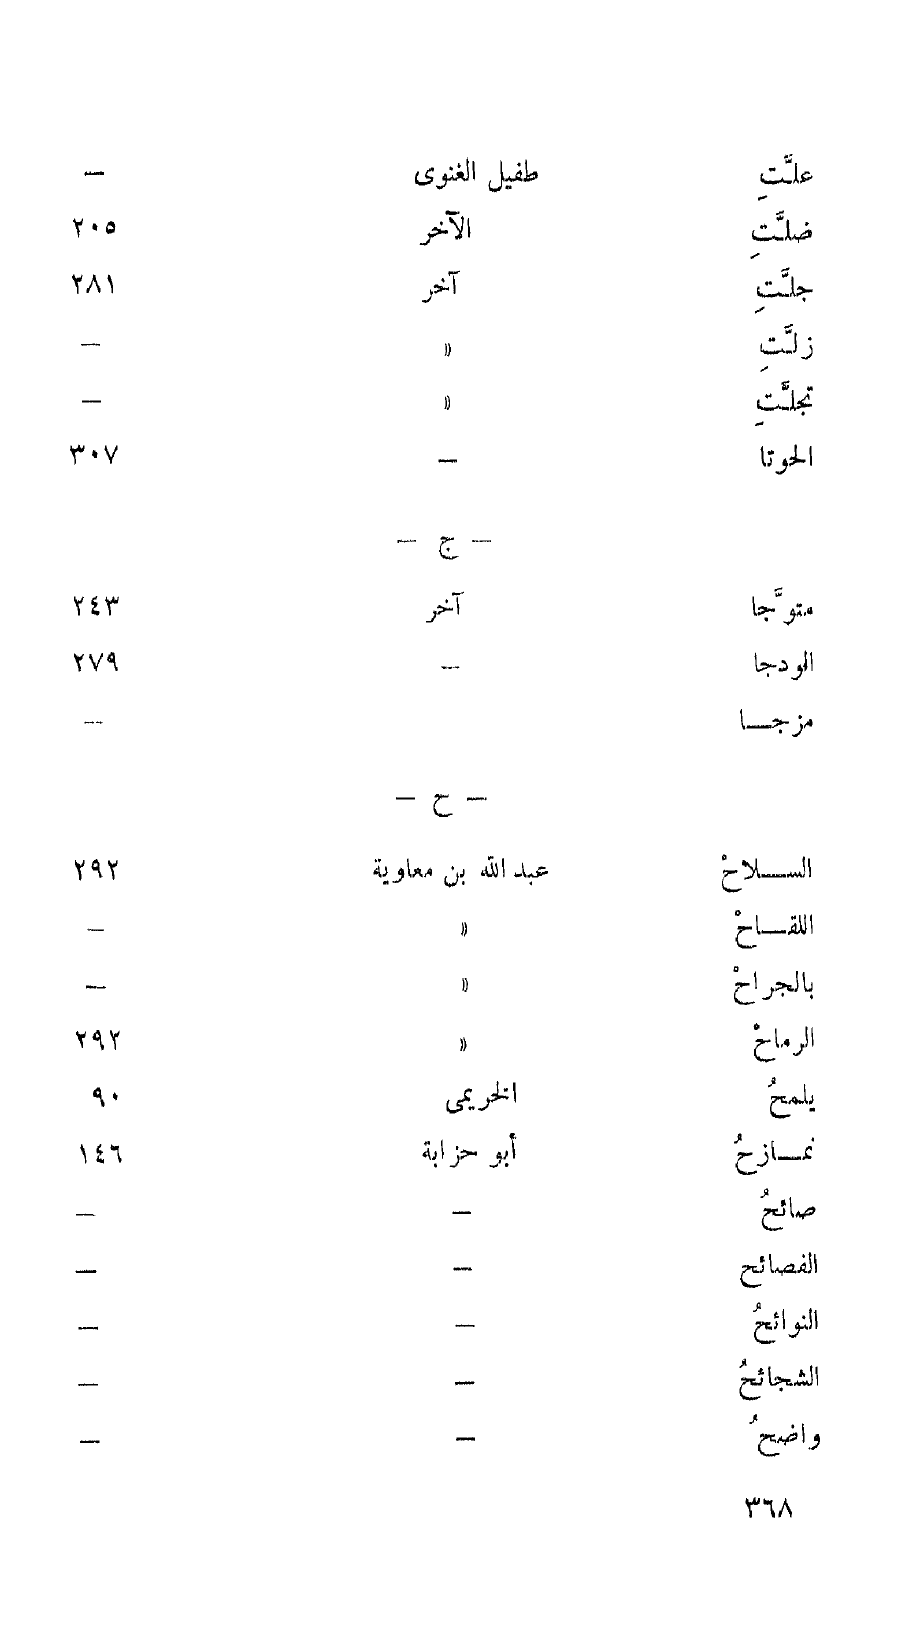 علَّتِ طفيل الغنوى —
ضلَّتِ الآخر ٢٠٥
جلَّتِ آخر ٢٨١
زلَّتِ » —
تجلَّتِ » —
الحوتا — ٣٠٧
— ج —
متوَّجا آخر ٢٤٣
الودجا — ٢٧٩
مزجـــا —
— ح —
الســـلاحْ عبد الله بن معاوية ٢٩٢
اللقـــاحْ » —
بالجراحْ » —
الرماحْ » ٢٩٢
يلمحُ الخريمى ٩٠
نمـــازحُ أبو حزابة ١٤٦
صائحُ — —
الفصائح — —
النوائحُ — —
الشجائحُ — —
واضحُ — —
٣٦٨